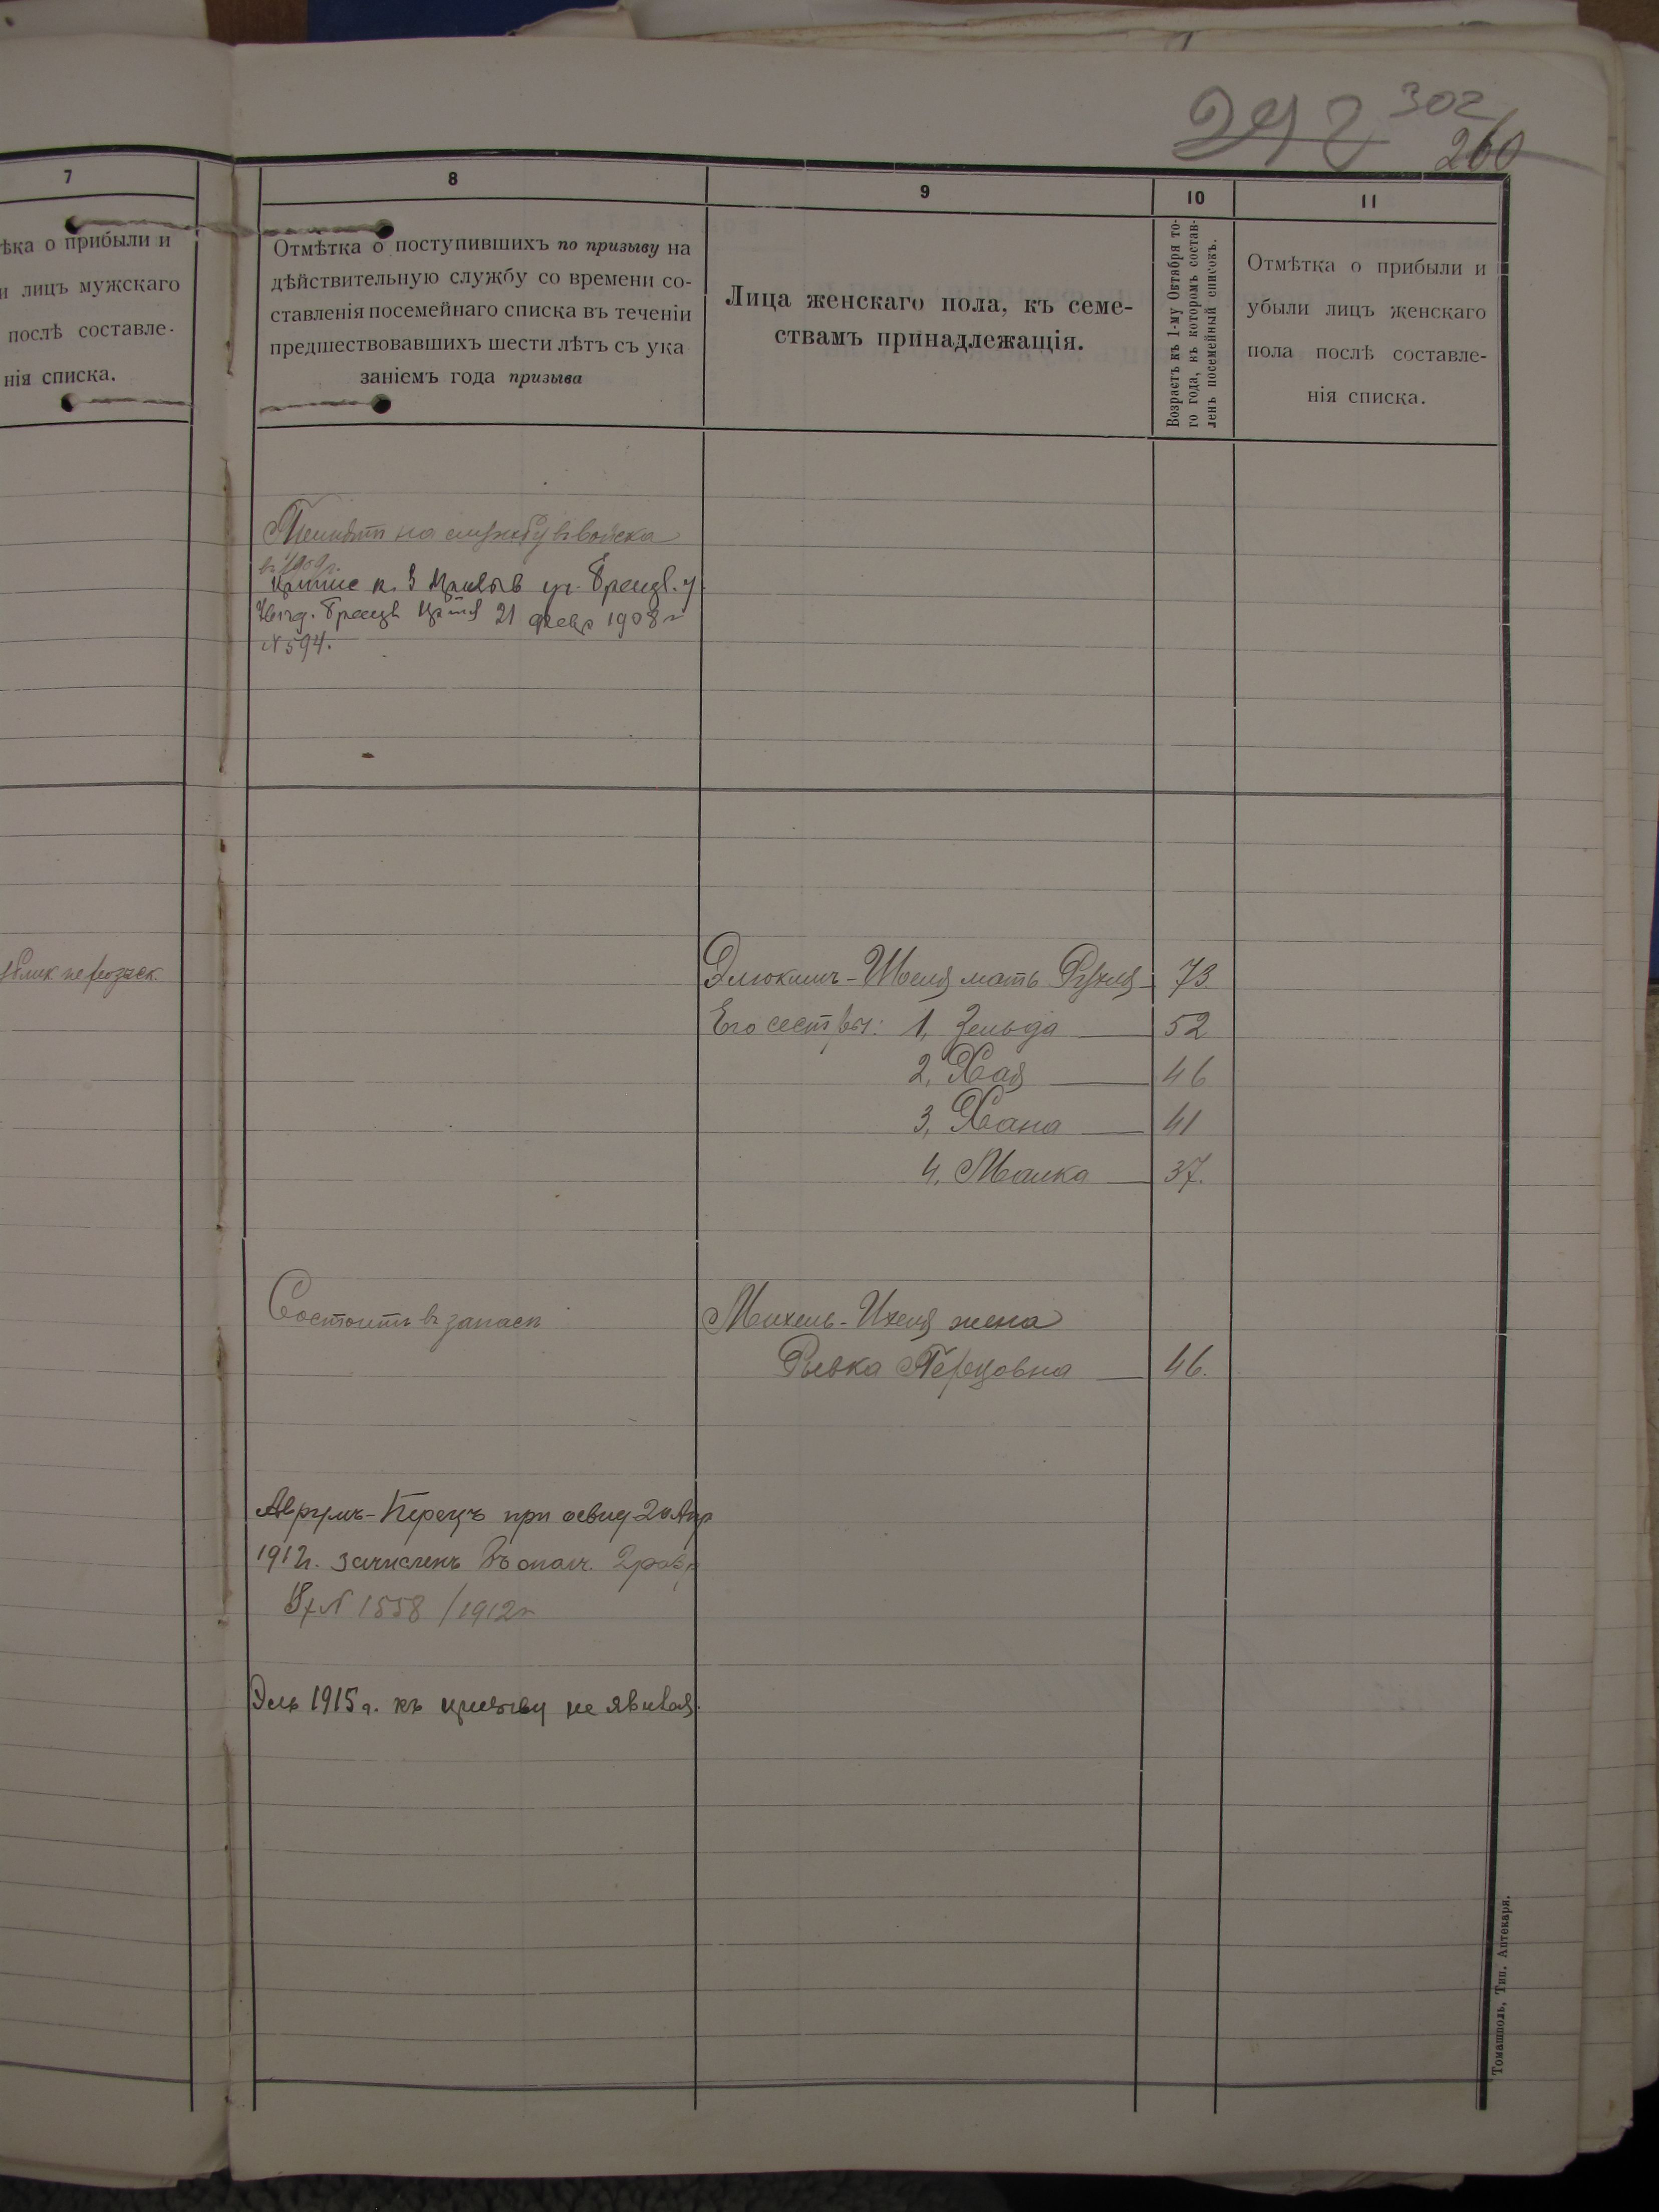 302
260
7
ѣка о прибыли и
и лицъ мужскаго
послѣ составле-
нія списка.
8
Отмѣтка о поступившихъ по призыву на
дѣйствительную службу со времени со-
ставленія посемейнаго списка въ теченіи
предшествовавшихъ шести лѣтъ съ ука
заніемъ года призыва
9
Лица женскаго пола, къ семе-
ствамъ принадлежащія.
10
Возрастъ къ 1-му Октября то-
го года, къ которомъ состав-
ленъ посемейный списокъ.
11
Отмѣтка о прибыли и
убыли лицъ женскаго
пола послѣ составле-
нія списка.
на службу в войска
21 февр 1908 г
N 594.
мать Рухля 73
Его сестры: 1, Зельда 52
2, Хая 46
3, Хана 41
4, Малка 37.
Состоитъ въ запасѣ
Михель- жена
Ривка Перецовна 46.
Аврумъ-Перецъ при освид 20 Апр
1912 г. зачисленъ въ ополч. 2 разр
N 1558 / 1912 г
1915 г. къ призыву не явился.
Томашполь, Тип. Аптекаря.